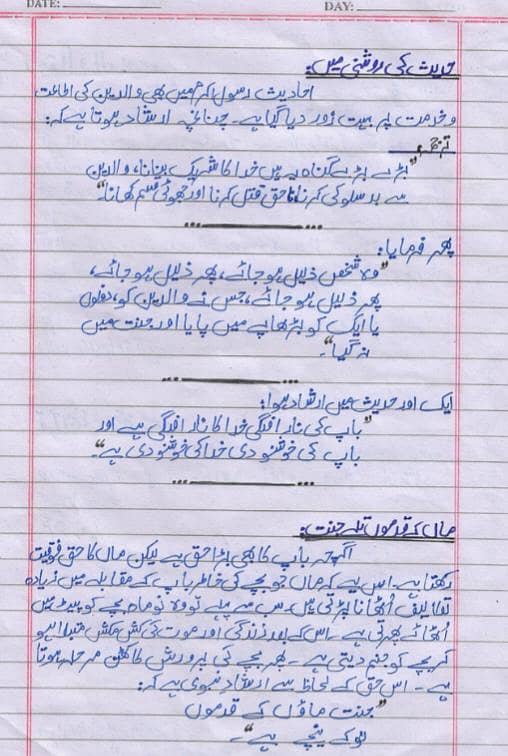 DATE:
DAY:
حدیث کی روشنی میں:
احادیث رسول اکرمؐ میں بھی والدین کی اطاعت
و خدمت پر بہت زور دیا گیا ہے۔ چنانچہ ارشاد ہوتا ہے کہ:
ترجمہ:
"بڑے بڑے گناہ یہ ہیں خدا کا شریک بنانا، والدین
سے بدسلوکی کرنا، ناحق قتل کرنا اور جھوٹی قسم کھانا۔"
پھر فرمایا:
"وہ شخص ذلیل ہو جائے، پھر ذلیل ہو جائے،
پھر ذلیل ہو جائے، جس نے والدین کو، دونوں
یا ایک کو بڑھاپے میں پایا اور جنت میں
نہ گیا"۔
ایک اور حدیث میں ارشاد ہوا:
"باپ کی ناراضگی خدا کا ناراضگی ہے اور
باپ کی خوشنودی خدا کی خوشنودی ہے"۔
ماں کے قدموں تلے جنت:
اگرچہ باپ کا بھی بڑا حق ہے لیکن ماں کا حق فوقیت
رکھتا ہے۔ اس لیے کہ ماں جو بچے کی خاطر باپ کے مقابلے میں زیادہ
تکالیف اُٹھانا پڑتی ہیں۔ سب سے پہلے تو وہ نو ماہ بچے کو پیٹ میں
اُٹھائے پھرتی ہے۔ اس کے بعد زندگی اور موت کی کش مکش مبتلا ہو
کر بچے کو جنم دیتی ہے۔ پھر بچے کی پرورش کا کٹھن مرحلہ ہوتا
ہے۔ اس حق کے لحاظ سے ارشاد نبوی ہے کہ:
"جنت ماؤں کے قدموں
کے نیچے ہے"۔